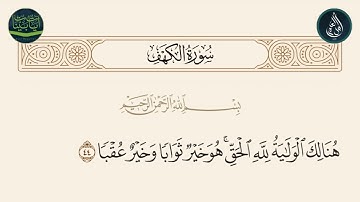 سُورَةُ الكَهْفِ
بِسْمِ اللَّهِ الرَّحْمَٰنِ الرَّحِيمِ
هُنَالِكَ ٱلْوَلَٰيَةُ لِلَّهِ ٱلْحَقِّ ۚ هُوَ خَيْرٌ ثَوَابًا وَخَيْرٌ عُقْبًا ٤٤